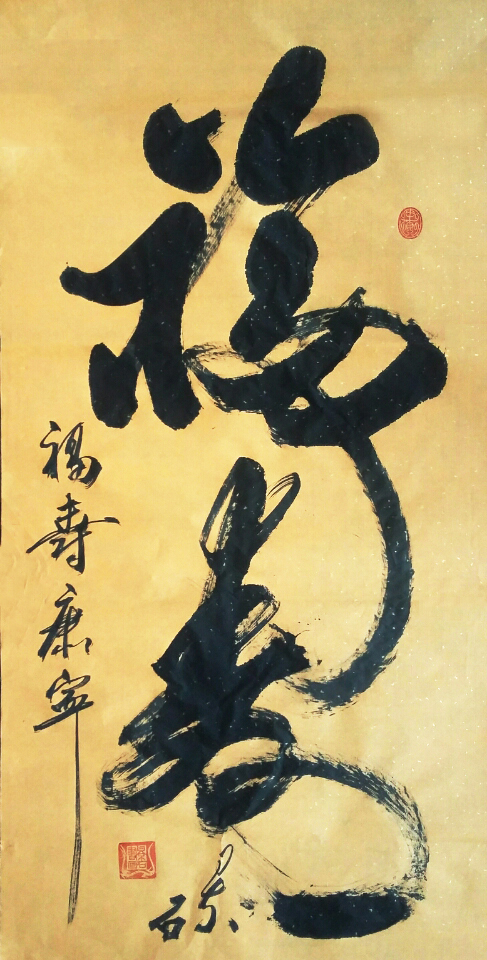 福寿
福寿康寧